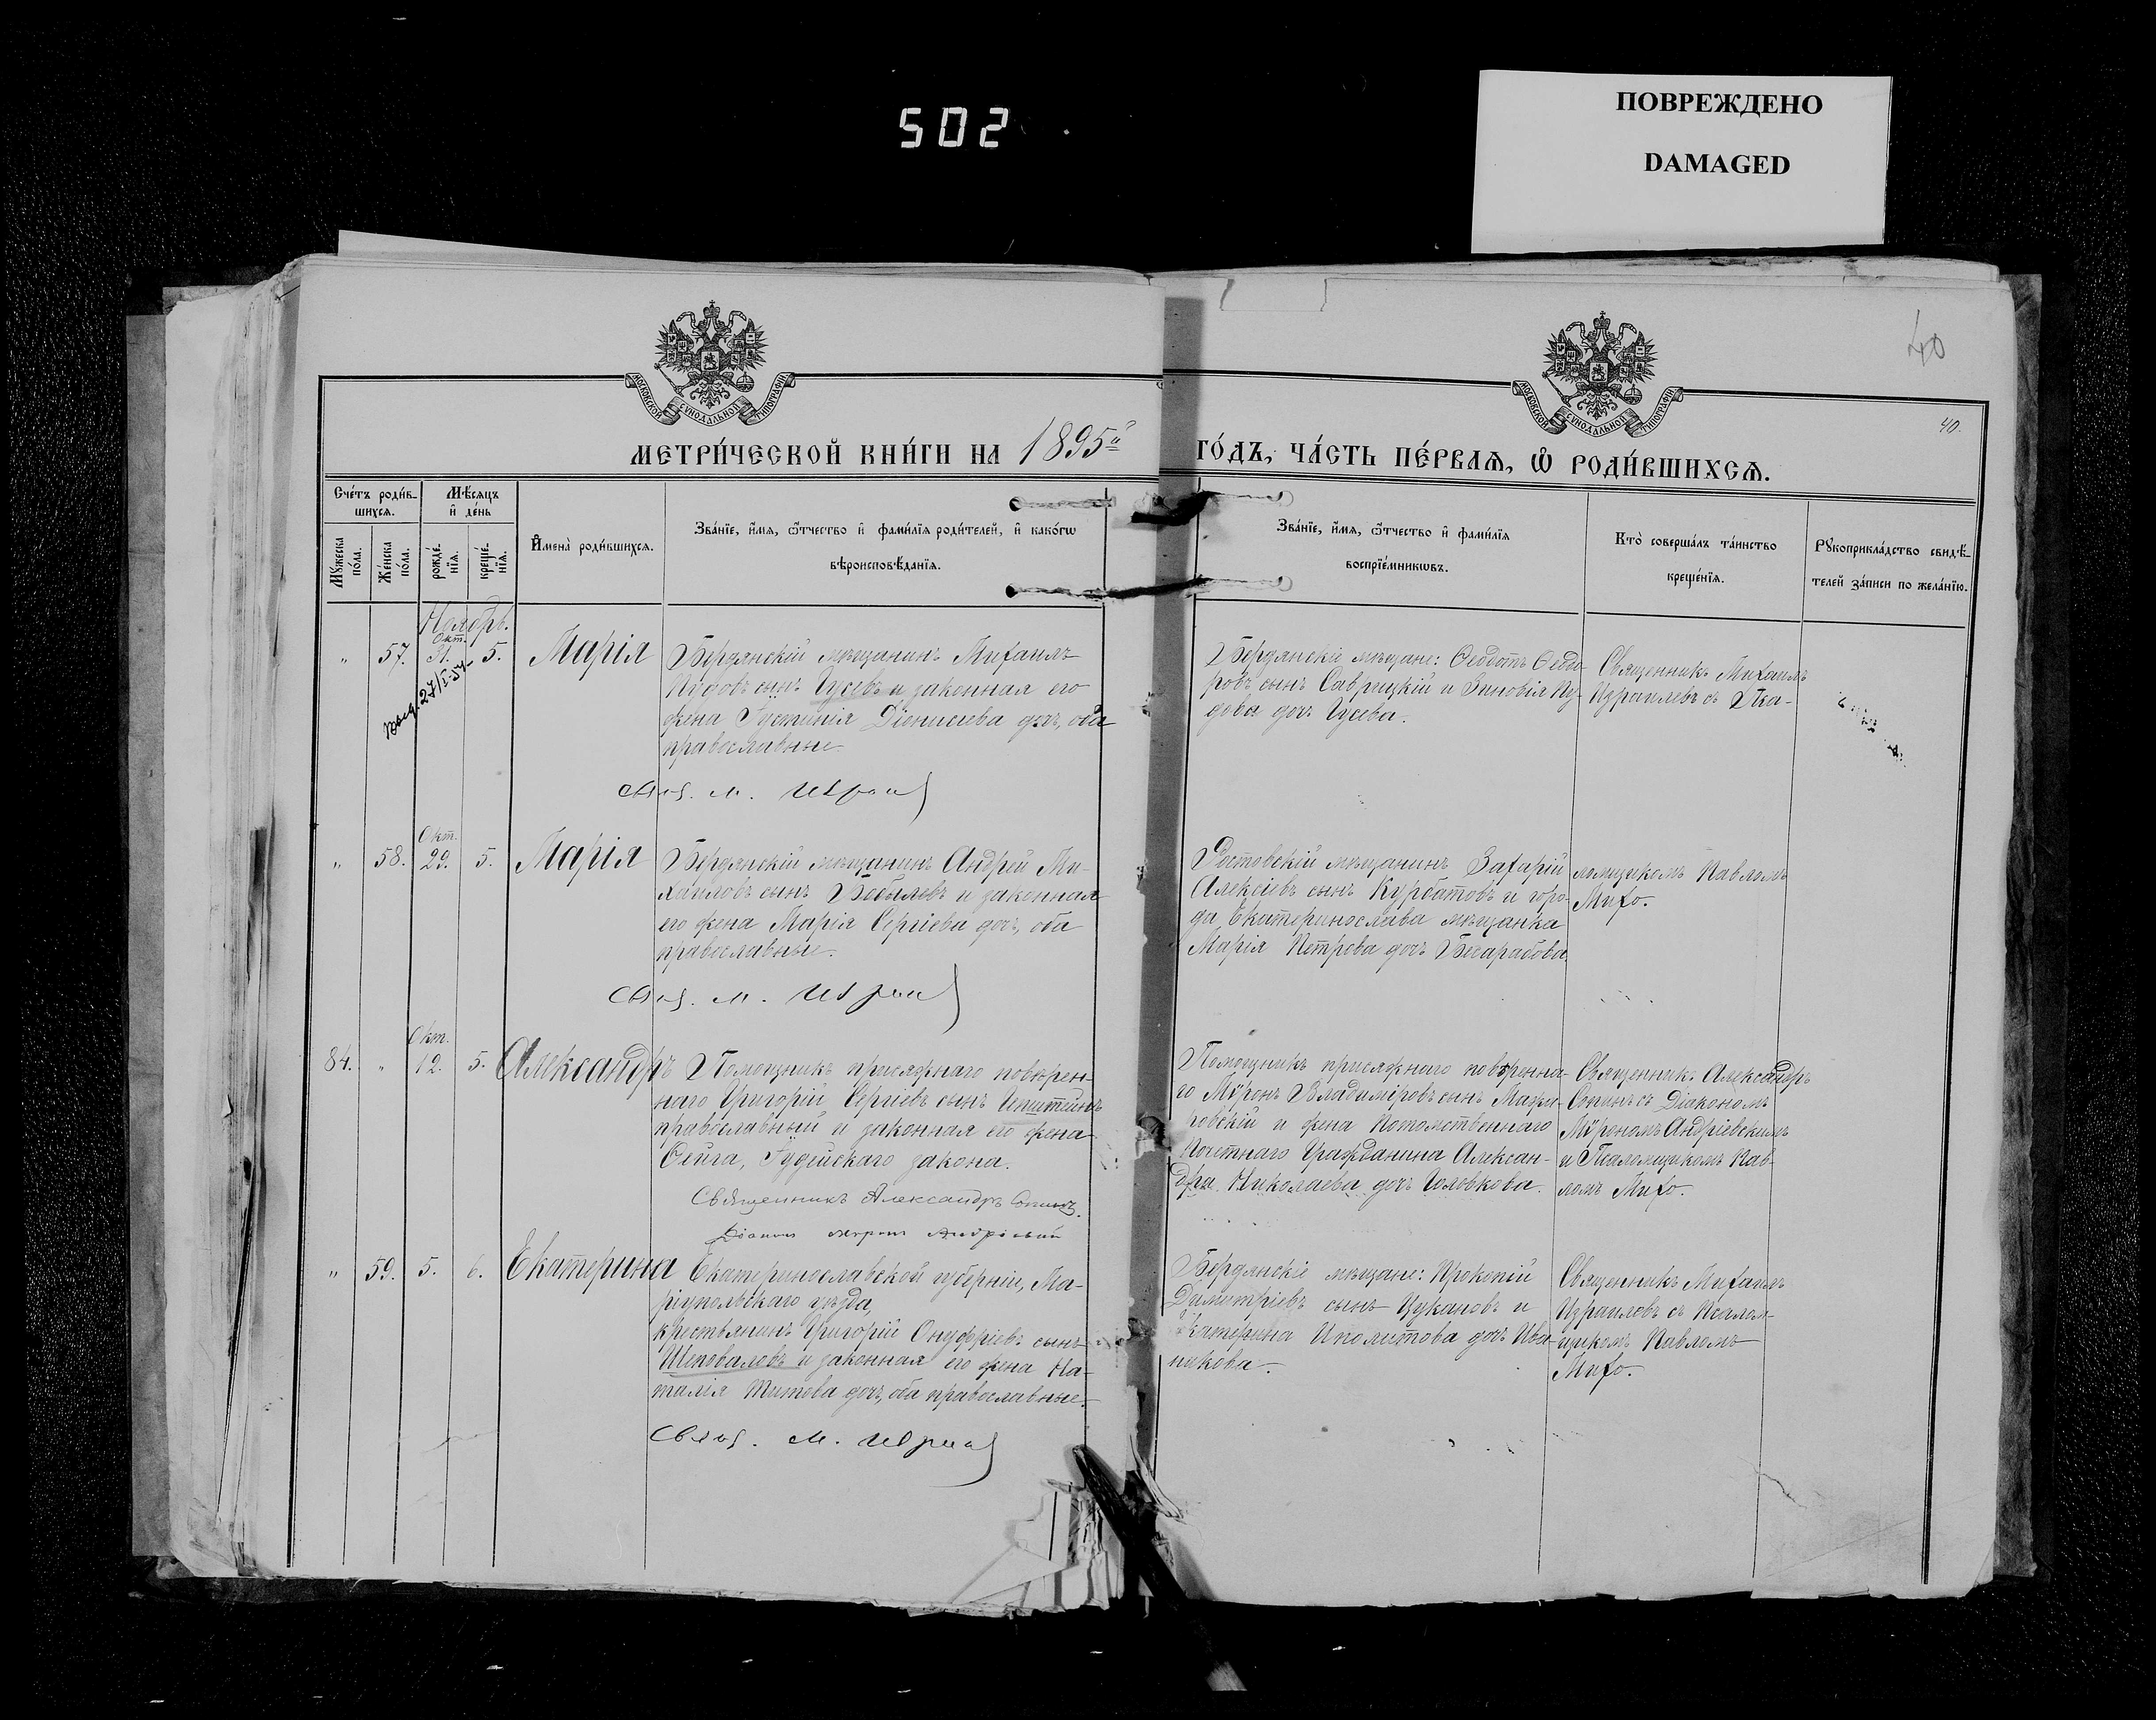 502
ПОВРЕЖДЕНО
DAMAGED
40
40.
МОСКОВСКОЙ СѴНОДАЛЬНОЙ ТИПОГРАФІИ
МОСКОВСКОЙ СѴНОДАЛЬНОЙ ТИПОГРАФІИ
МЕТРИ́ЧЕСКОЙ КНИ́ГИ НА 1895й ГО́ДЪ, ЧА́СТЬ ПЕ́РВАѦ, Ѽ РОДИ́ВШИХСѦ.
Сче́тъ роди́в-
шихся.
Мѣ́сяцъ
и де́нь
Мꙋ́жеска
по́ла.
Же́нска
по́ла.
рожде́-
нїя.
креще́-
нїя.
И҆мена̀ роди́вшихся.
Зва́нїе, и҆́мя, ѻ҆́тчество и҆ фами́лїя роди́телей, и҆ како́гѡ
вѣроисповѣ́данїя.
Зва́нїе, и҆́мя, ѻ҆́тчество и҆ фами́лїя
воспрїе́мникѡвъ.
Кто̀ соверша́лъ та́инство
креще́нїя.
Рꙋкоприкла́дство свидѣ́-
телей за́писи по жела́нїю.
Ноябрь.
Окт.
" 57. 31. 5. Марія
27/I-57
Бердянскій мѣщанинъ Михаилъ
Пудовъ сынъ Гусевъ и законная его
жена Іустинія Діонисіева дочь, оба
православные.
Свящ. М. Израил
Бердянскіе мѣщане: Ѳеодотъ Ѳеодо-
ровъ сынъ Саврицкій и Зиновія Пу-
дова дочь Гусева.
Священникъ Михаилъ
Израилевъ съ Пса-
Окт.
" 58. 29. 5. Марія
Бердянскій мѣщанинъ Андрей Ми-
хаиловъ сынъ Бобылевъ и законная
его жена Марія Сергіева дочь, оба
православные.
Свящ. М. Израил
Ростовскій мѣщанинъ Захарій
Алексіевъ сынъ Курбатовъ и горо-
да Екатеринослава мѣщанка
Марія Петрова дочь Бесарабова.
ломщикомъ Павломъ
Михо.
Окт.
84. " 12. 5. Александръ
Помощникъ присяжнаго повѣрен-
наго Григорій Сергіевъ сынъ Ипштейнъ
православный и законная его жена
Ѳейга, Іудейскаго закона.
Священникъ Александръ Сопинъ.
Діаконъ Мѵронъ Андріевскій
Помощникъ присяжнаго повѣренна-
го Мѵронъ Владиміровъ сынъ Мажа-
ровскій и жена Потомственнаго
Почетнаго Гражданина Алексан-
дра Николаева дочь Головкова.
Священникъ Александръ
Сопинъ съ Діакономъ
Мѵрономъ Андріевскимъ
и Псаломщикомъ Пав-
ломъ Михо.
" 59. 5. 6. Екатерина
Екатеринославской губерніи, Ма-
ріупольскаго уѣзда,
крестьянинъ Григорій Онуфріевъ сынъ
Шеповаловъ и законная его жена На-
талія Титова дочь, оба православные.
Свящ. М. Израил
Бердянскіе мѣщане: Прокопій
Димитріевъ сынъ Цукановъ и
Екатерина Иполитова дочь Ива-
никова.
Священникъ Михаилъ
Израилевъ съ Псалом-
щикомъ Павломъ
Михо.